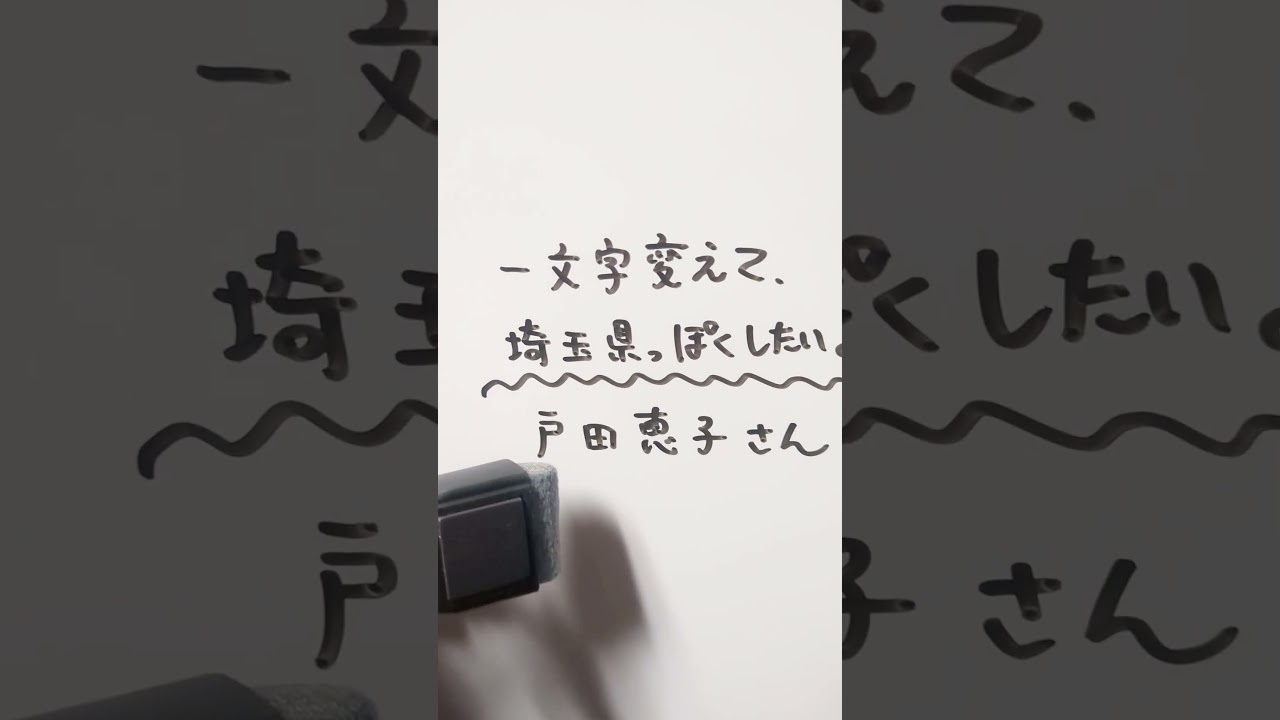 一文字変えて、
埼玉県っぽくしたい。
戸田恵子さん